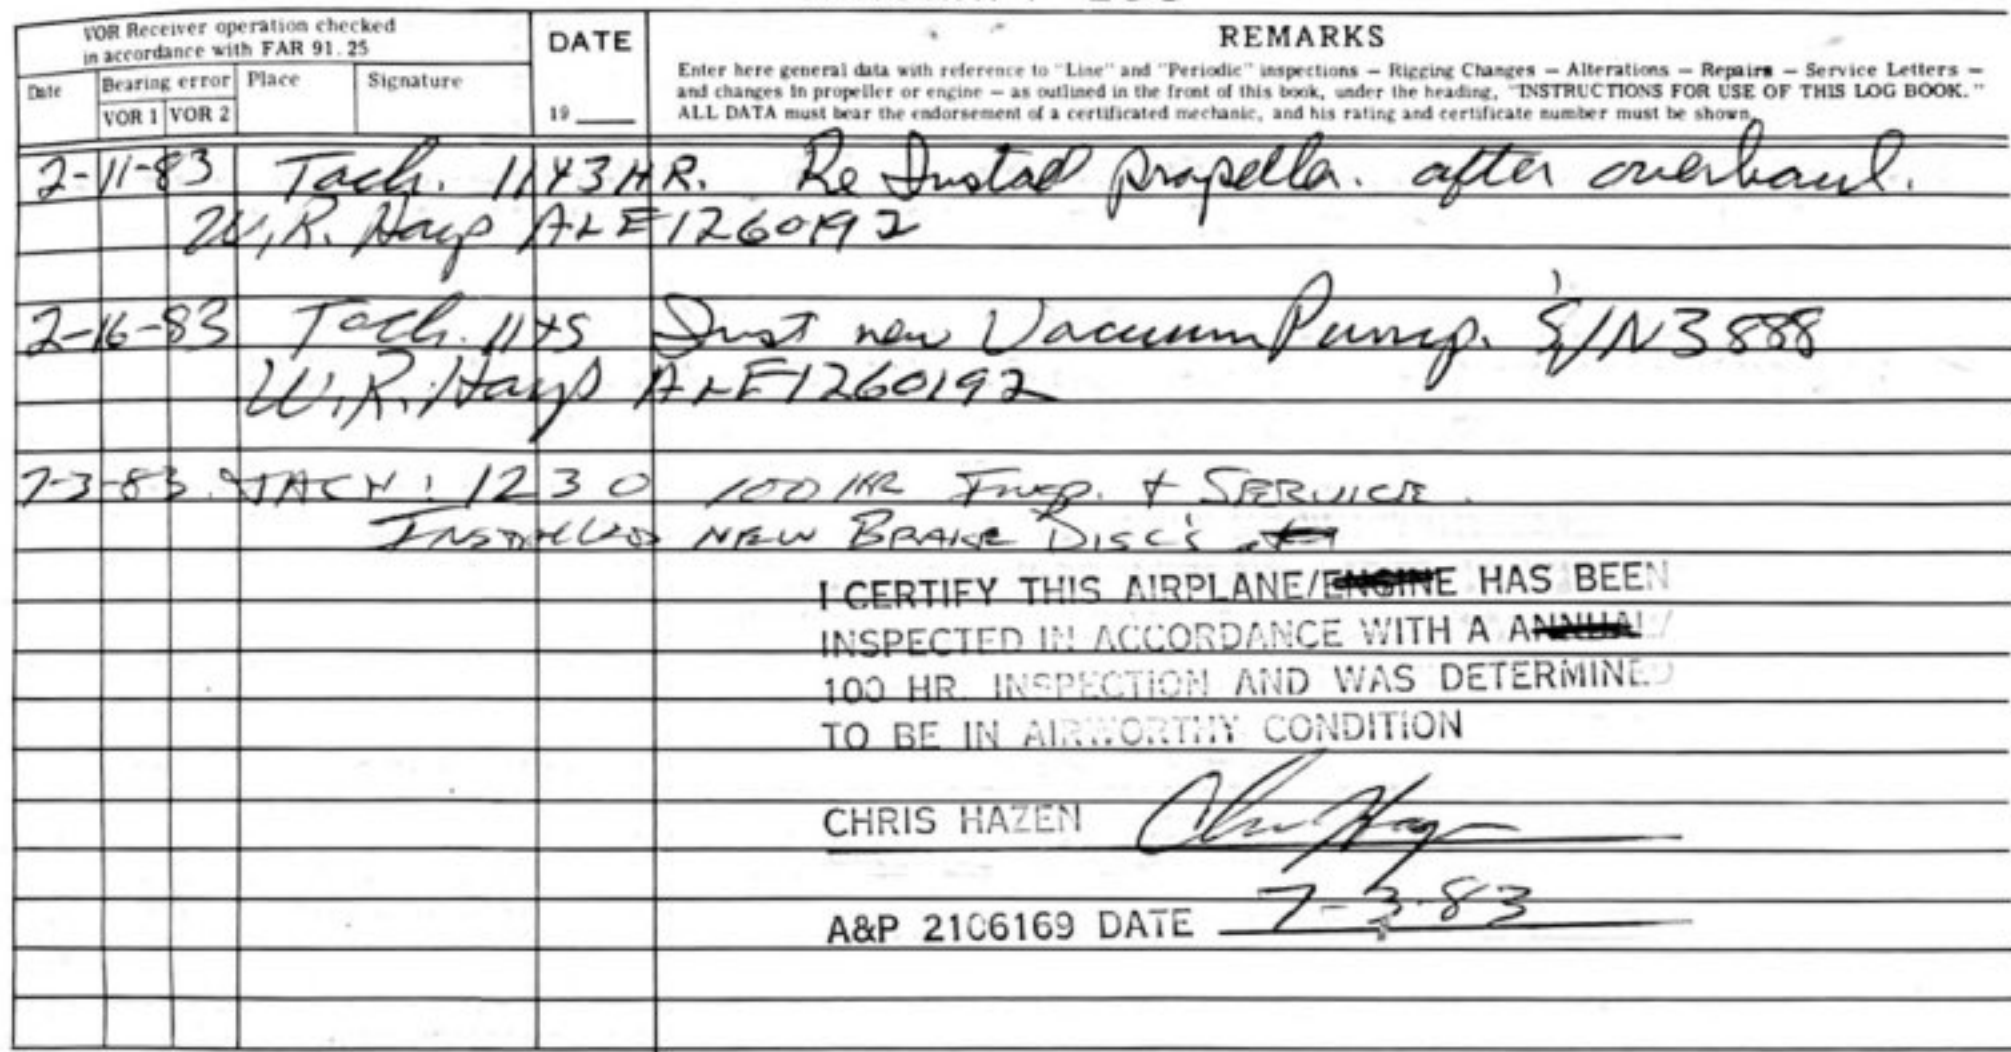 VOR Receiver operation checked
in accordance with FAR 91.25
Date
Bearing error
VOR 1 VOR 2
Place
Signature
DATE
19
REMARKS
Enter here general data with reference to "Line" and "Periodic" inspections — Rigging Changes — Alterations — Repairs — Service Letters —
and changes in propeller or engine — as outlined in the front of this book, under the heading, "INSTRUCTIONS FOR USE OF THIS LOG BOOK."
ALL DATA must bear the endorsement of a certificated mechanic, and his rating and certificate number must be shown.
2-11-83 Tach. 1143 HR. Re Install propeller. after overhaul.
W.R. Hays A&E 1260192
2-16-83 Tach. 1145 Inst new Vacuum Pump. S/N 3888
W.R. Hays A&E 1260192
7-3-83 TACH: 1230 100 HR Insp. + SERVICE.
INSTALLED NEW BRAKE DISC'S
I CERTIFY THIS AIRPLANE/ENGINE HAS BEEN
INSPECTED IN ACCORDANCE WITH A ANNUAL/
100 HR. INSPECTION AND WAS DETERMINED
TO BE IN AIRWORTHY CONDITION
CHRIS HAZEN Chris Hazen
A&P 2106169 DATE 7-3-83